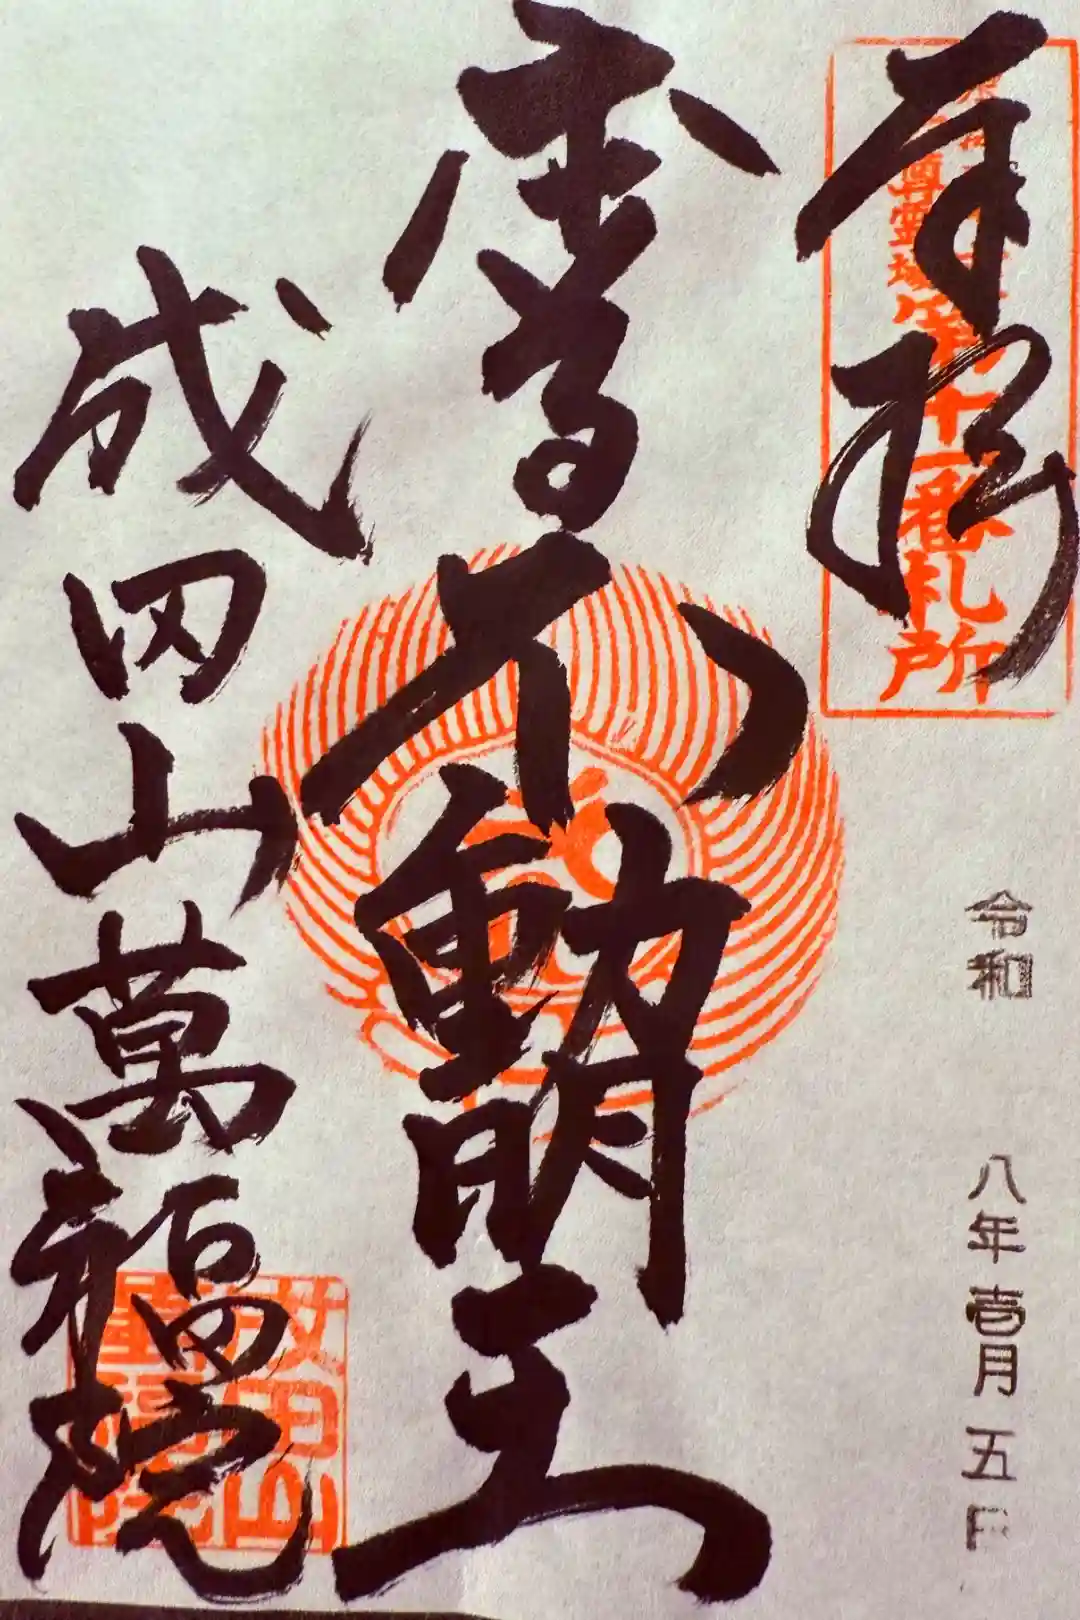 奉拝
尊霊場第十一番札所
令和 八年 壱月 五日
不動明王
成田山萬福院
成田山
萬福院